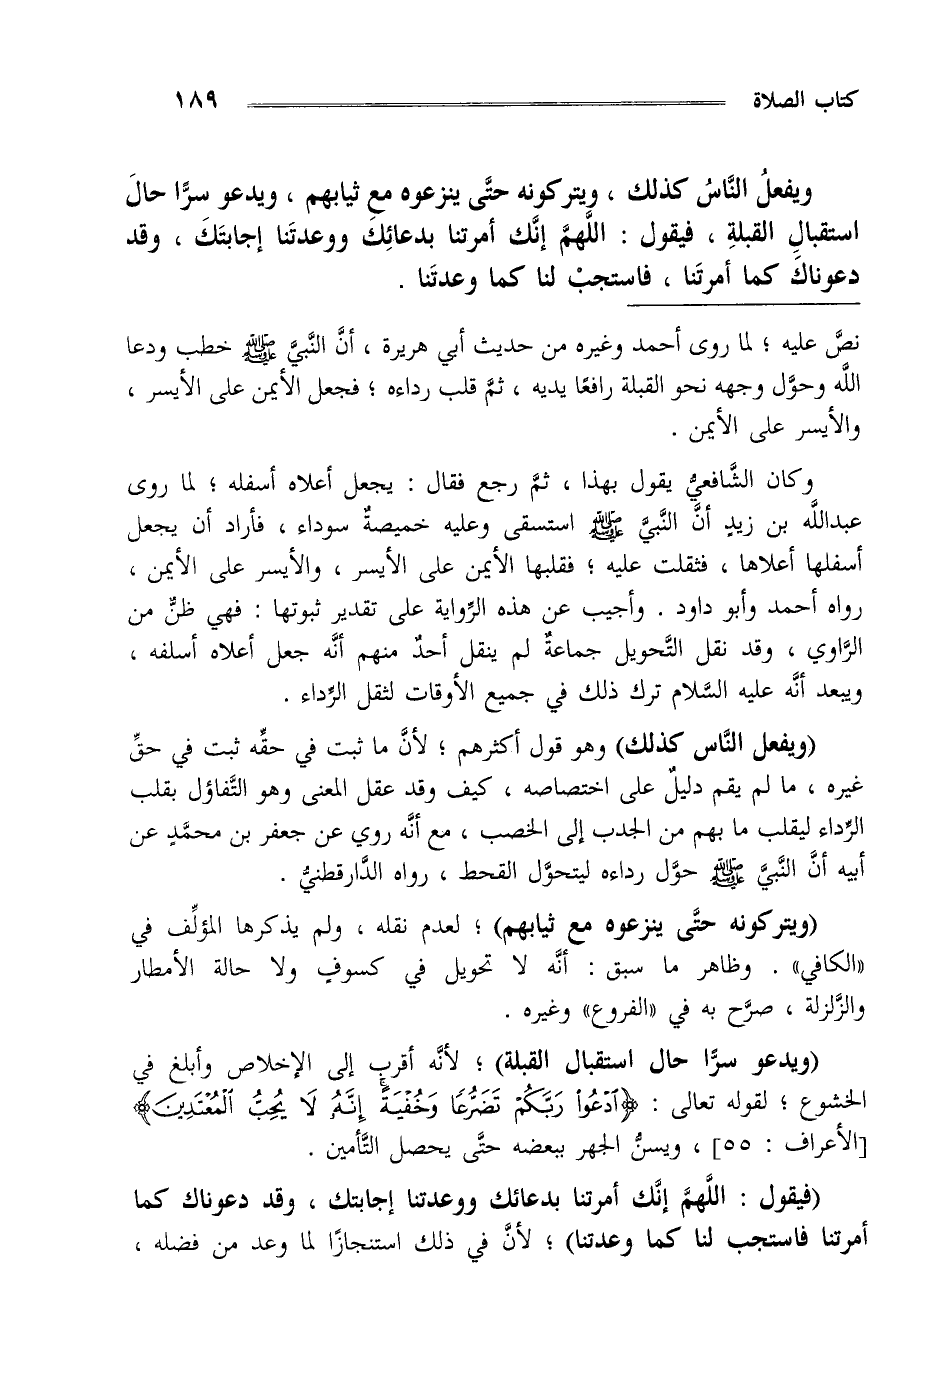 كتاب الصلاة ١٨٩
ويفعلُ النَّاسُ كذلك ، ويتركونه حتَّى ينزعوه مع ثيابهم ، ويدعو سرًّا حالَ
استقبالِ القبلةِ ، فيقول : اللَّهمَّ إنَّك أمرتنا بدعائِكَ ووعدتَنا إجابتَكَ ، وقد
دعوناكَ كما أمرتَنا ، فاستجبْ لنا كما وعدتَنا .
نصَّ عليه ؛ لما روى أحمد وغيره من حديث أبي هريرة ، أنَّ النَّبيَّ ﷺ خطب ودعا
اللَّه وحوَّل وجهه نحو القبلة رافعًا يديه ، ثمَّ قلب رداءه ؛ فجعل الأيمن على الأيسر ،
والأيسر على الأيمن .
وكان الشَّافعيُّ يقول بهذا ، ثمَّ رجع فقال : يجعل أعلاه أسفله ؛ لما روى
عبداللَّه بن زيدٍ أنَّ النَّبيَّ ﷺ استسقى وعليه خميصةٌ سوداء ، فأراد أن يجعل
أسفلها أعلاها ، فثقلت عليه ؛ فقلبها الأيمن على الأيسر ، والأيسر على الأيمن ،
رواه أحمد وأبو داود . وأجيب عن هذه الرِّواية على تقدير ثبوتها : فهي ظنٌّ من
الرَّاوي ، وقد نقل التَّحويل جماعةٌ لم ينقل أحدٌ منهم أنَّه جعل أعلاه أسلفه ،
ويبعد أنَّه عليه السَّلام ترك ذلك في جميع الأوقات لثقل الرِّداء .
(ويفعل النَّاس كذلك) وهو قول أكثرهم ؛ لأنَّ ما ثبت في حقِّه ثبت في حقِّ
غيره ، ما لم يقم دليلٌ على اختصاصه ، كيف وقد عقل المعنى وهو التَّفاؤل بقلب
الرِّداء ليقلب ما بهم من الجدب إلى الخصب ، مع أنَّه روي عن جعفر بن محمَّدٍ عن
أبيه أنَّ النَّبيَّ ﷺ حوَّل رداءه ليتحوَّل القحط ، رواه الدَّارقطنيُّ .
(ويتركونه حتَّى ينزعوه مع ثيابهم) ؛ لعدم نقله ، ولم يذكرها المؤلِّف في
«الكافي» . وظاهر ما سبق : أنَّه لا تحويل في كسوفٍ ولا حالة الأمطار
والزَّلزلة ، صرَّح به في «الفروع» وغيره .
(ويدعو سرًّا حال استقبال القبلة) ؛ لأنَّه أقرب إلى الإخلاص وأبلغ في
الخشوع ؛ لقوله تعالى : ﴿ٱدْعُوا۟ رَبَّكُمْ تَضَرُّعًا وَخُفْيَةً ۚ إِنَّهُۥ لَا يُحِبُّ ٱلْمُعْتَدِينَ﴾
[الأعراف : ٥٥] ، ويسنُّ الجهر ببعضه حتَّى يحصل التَّأمين .
(فيقول : اللَّهمَّ إنَّك أمرتنا بدعائك ووعدتنا إجابتك ، وقد دعوناك كما
أمرتنا فاستجب لنا كما وعدتنا) ؛ لأنَّ في ذلك استنجازًا لما وعد من فضله ،